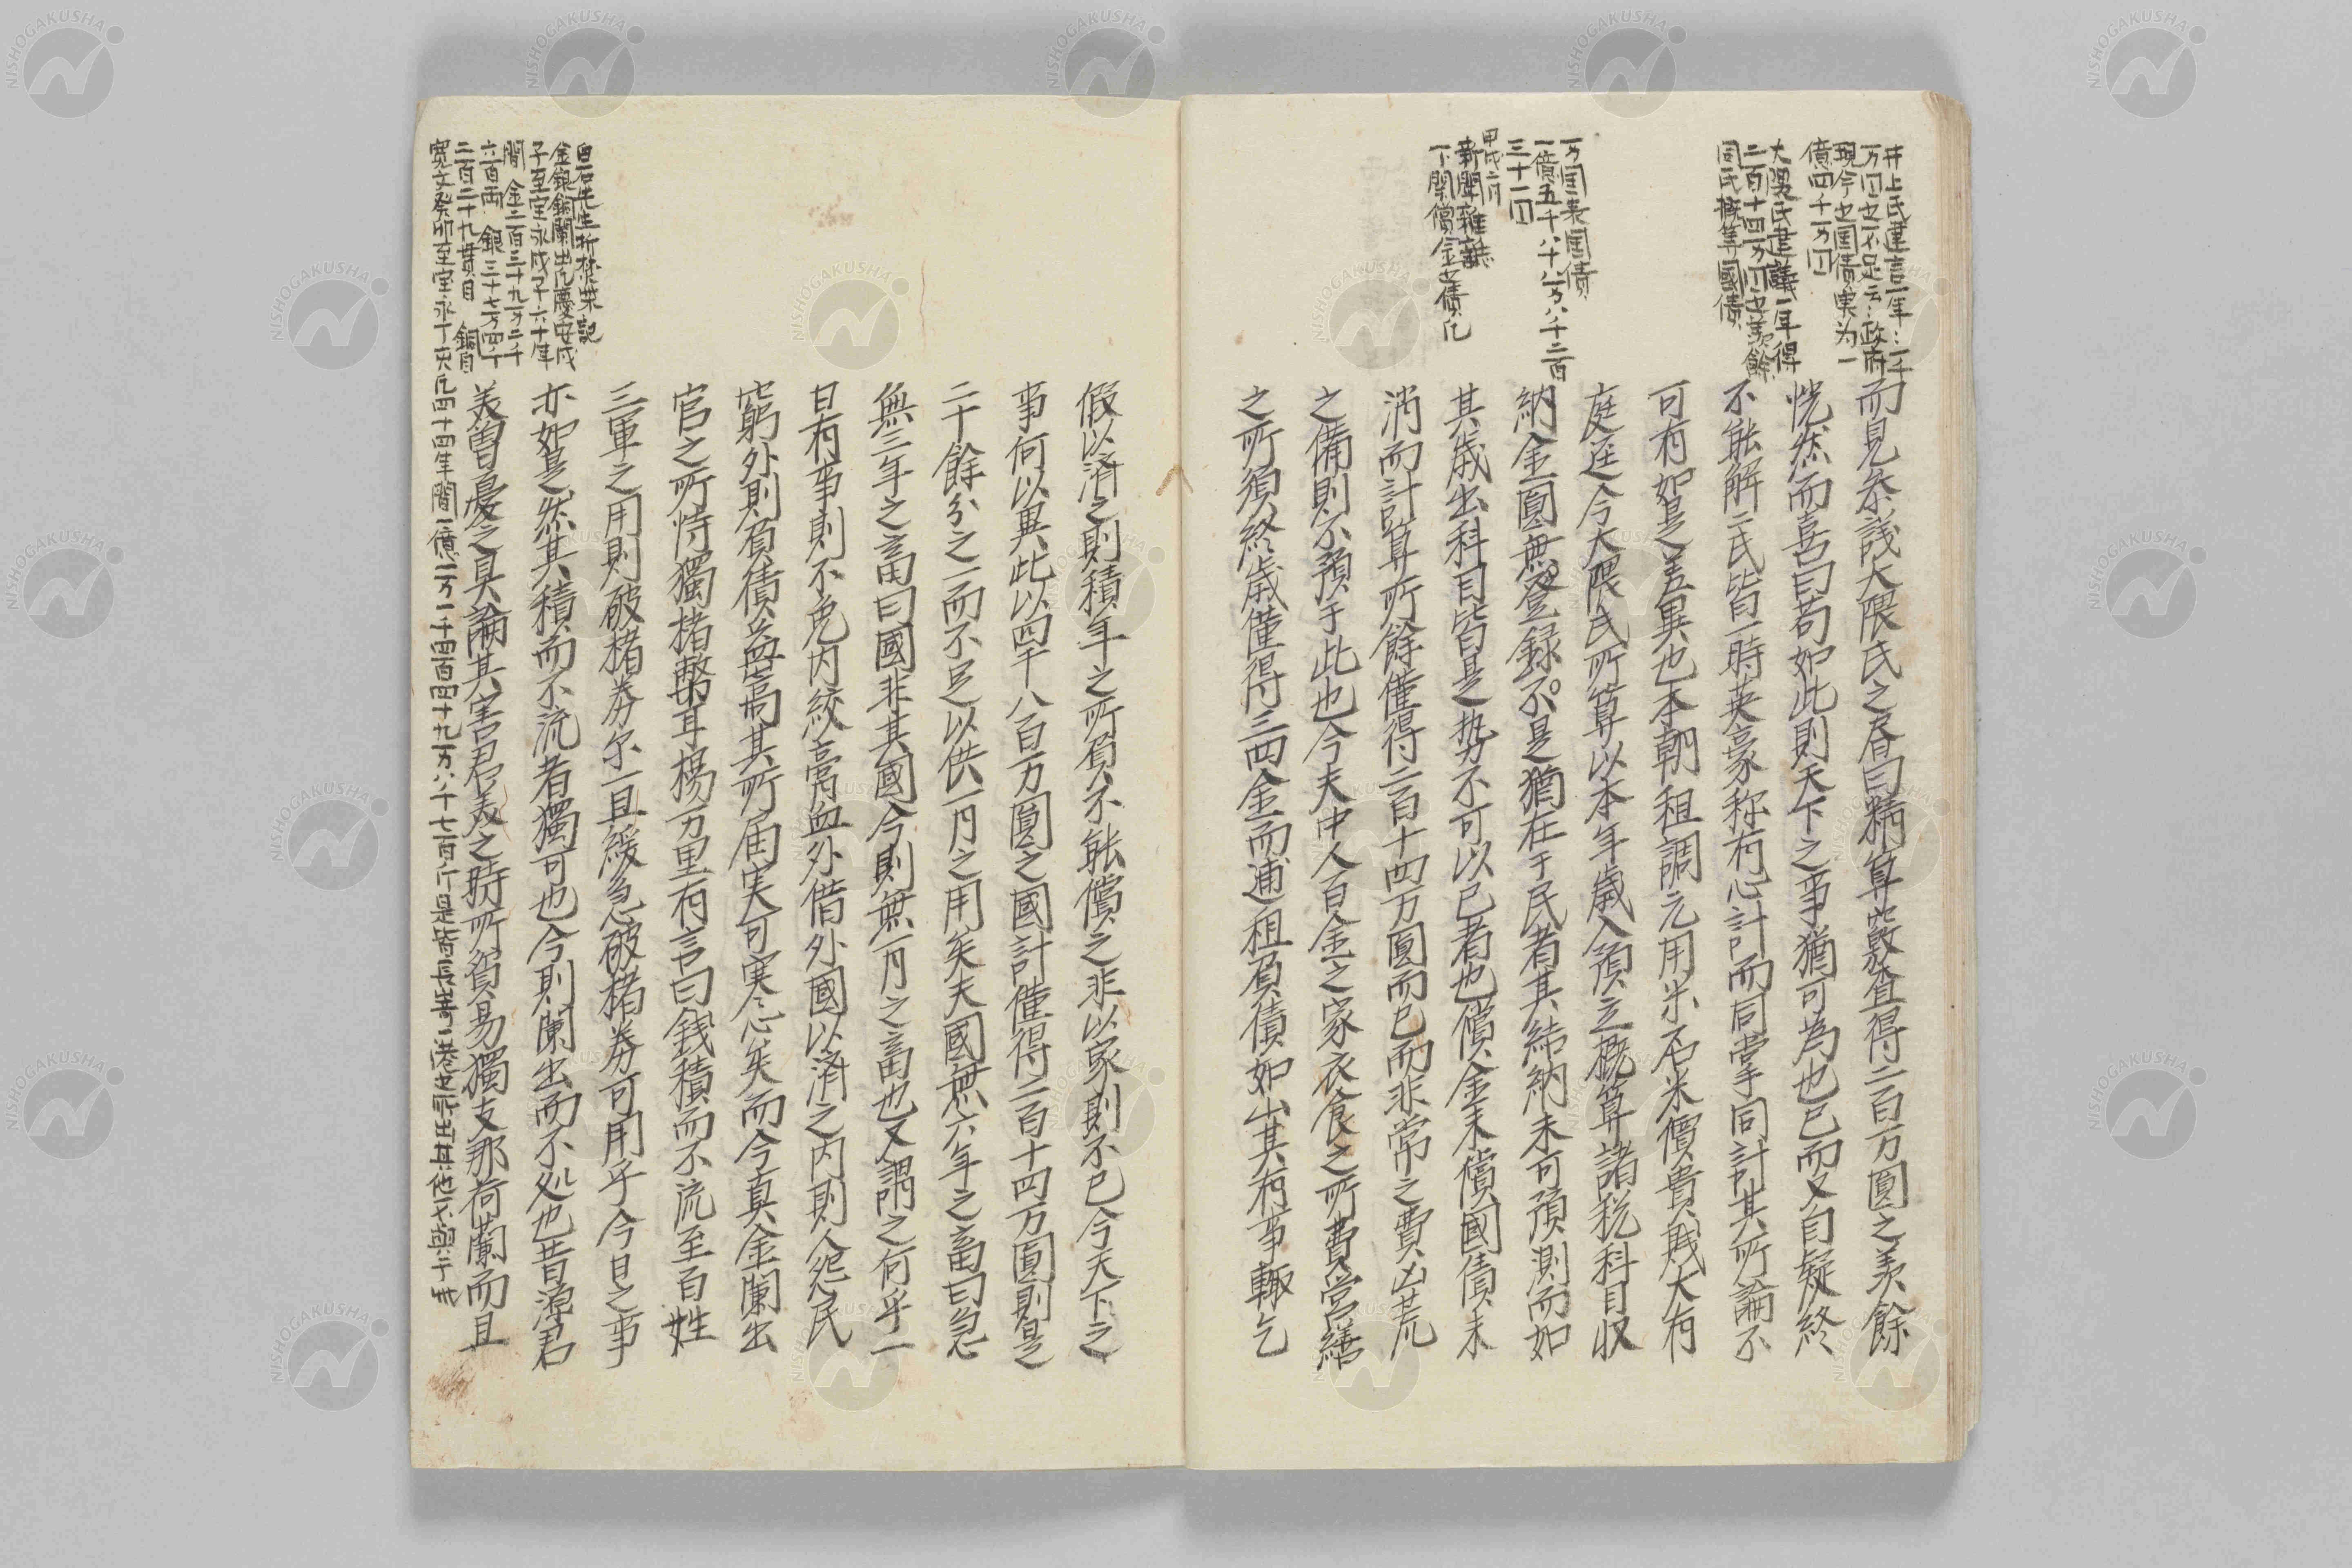 井上氏建言一年二千
万円之不足云政府
現今之国債実为一
億四千万円
大隈氏建議一年得
二百十四万円之羨餘
同氏概算國債
而見参議大隈氏之奏曰精算覈査得二百万圓之羨餘
恍然而喜曰苟如此則天下之事猶可為也已而又自疑終
不能解二氏皆一時英豪称有心計而同掌同計其所論不
可有如是差異也本朝租調元用米石米價貴賎大有
庭逕今大隈氏所算以本年歳入預立概算諸税科目収
納金圓無登録不是猶在于民者其結納未可預測而如
其歳出科目皆是勢不可以已者也償金未償國債未
消而計算所餘僅得二百十四万圓而已而非常之費凶荒
之備則不預于此也今夫中人百金之家衣食之所費営繕
之所須終歳僅得三四金而逋租負債如山其有事輙乞
万国表国債
一億五千八十八万八千二百
三十一円
甲戌六月
新聞雑誌
下関償金之債凡
假以済之則積年之所負不能償之非以家則不已今天下之
事何以異此以四千八百万圓之國計僅得二百十四万圓則是
二十餘分之一而不足以供一月之用矣夫國無六年之畜曰急
無三年之畜曰國非其國今則無一月之畜也又謂之何乎一
日有事則不免内絞膏血外借外國以済之内則人怨民
窮外則負債益高其所届実可寒心矣而今真金闌出
官之所恃獨楮幣耳楊万里有言曰錢積而不流至百姓
三軍之用則破楮券尓一旦緩急破楮券可用乎今日之事
亦如是然其積而不流者獨可也今則闌出而不処也昔源君
美曽憂之具論其害君美之時所貿易獨支那荷蘭而且
白石先生折焚柴記
金銀銅闌出凡慶安戊
子至宝永戊子六十年
間 金二百三十九万二千
六百両 銀三十七万四千
二百二十九貫目 銅自
寛文癸卯至宝永丁亥凡四十四年間一億一万一千四百四十九万八千七百斤是皆長嵜一港之所出其他不與于此